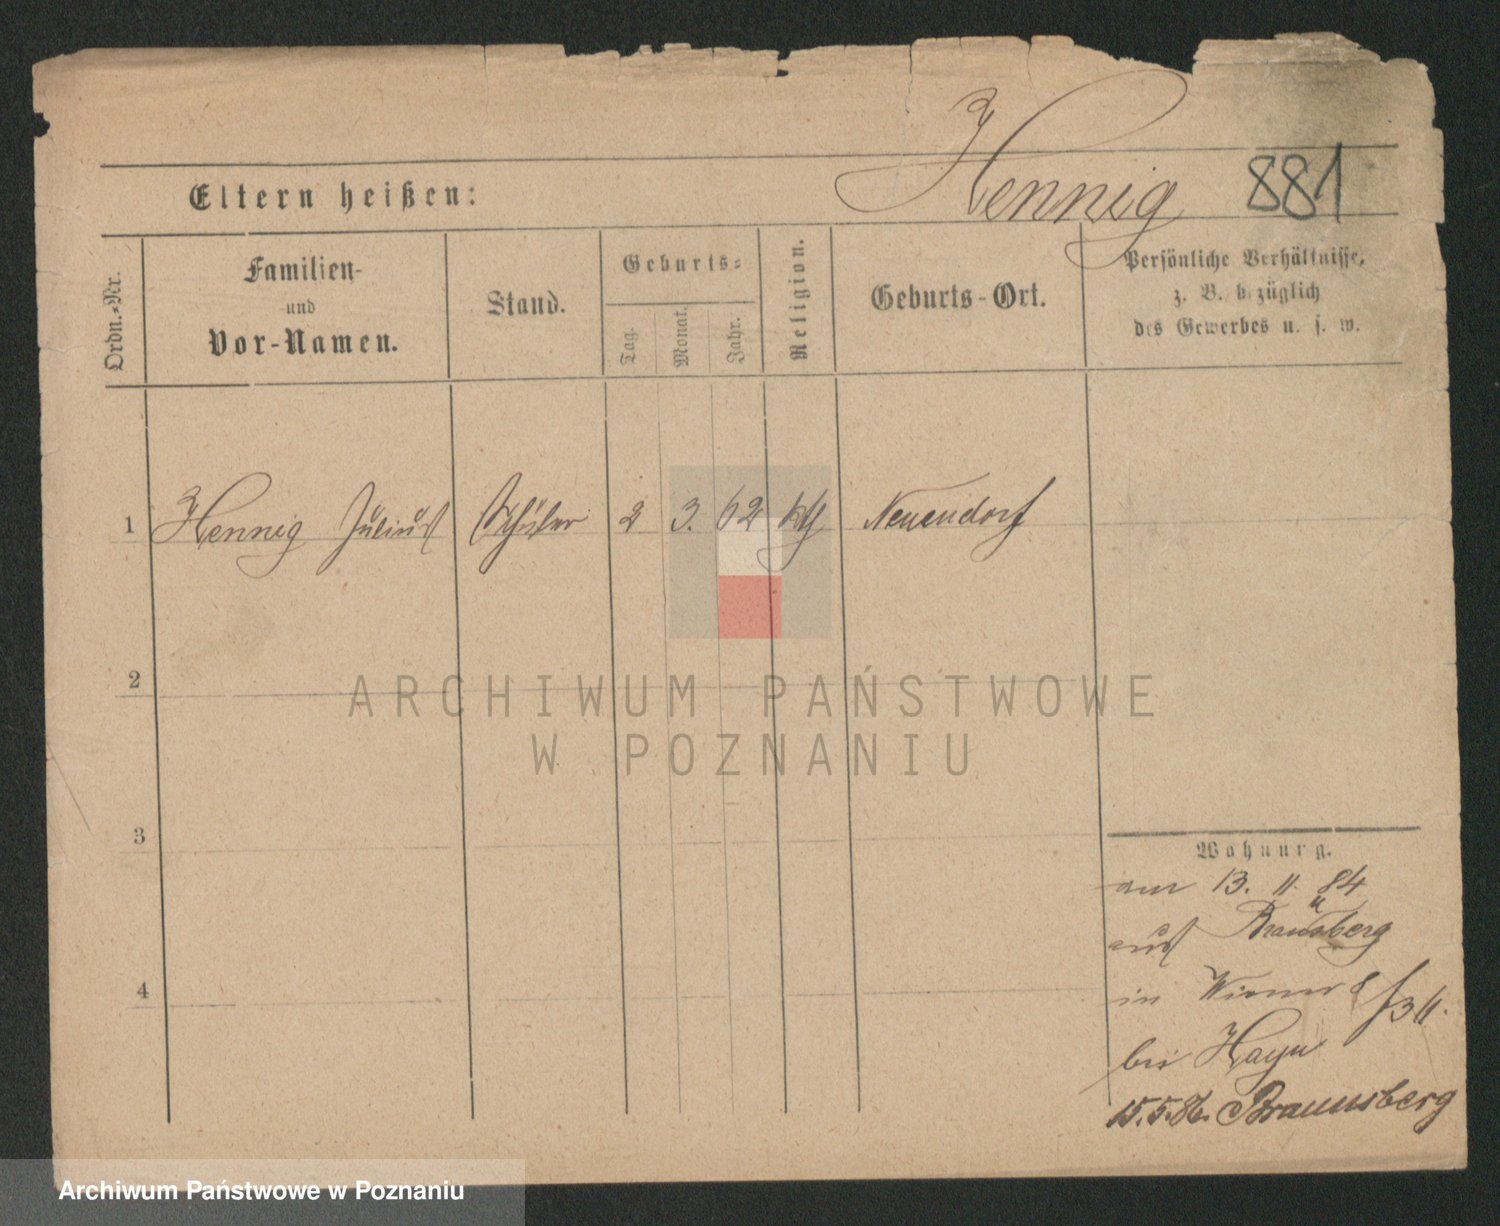 Hennig 881
Eltern heißen:
Ordn.-Nr.
Familien-
und
Vor-Namen.
Stand.
Geburts-
Tag.
Monat.
Jahr.
Religion.
Geburts-Ort.
Persönliche Verhältnisse,
z. B. bezüglich
des Gewerbes u. s. w.
1 Hennig Julius Schüler 2 3. 62 kth Neuendorf
2
3
4
Wohnung.
am 13. 11. 84
aus Braunsberg
in
bei Hayn
15.5.86. Braunsberg
ARCHIWUM PAŃSTWOWE
W POZNANIU
Archiwum Państwowe w Poznaniu